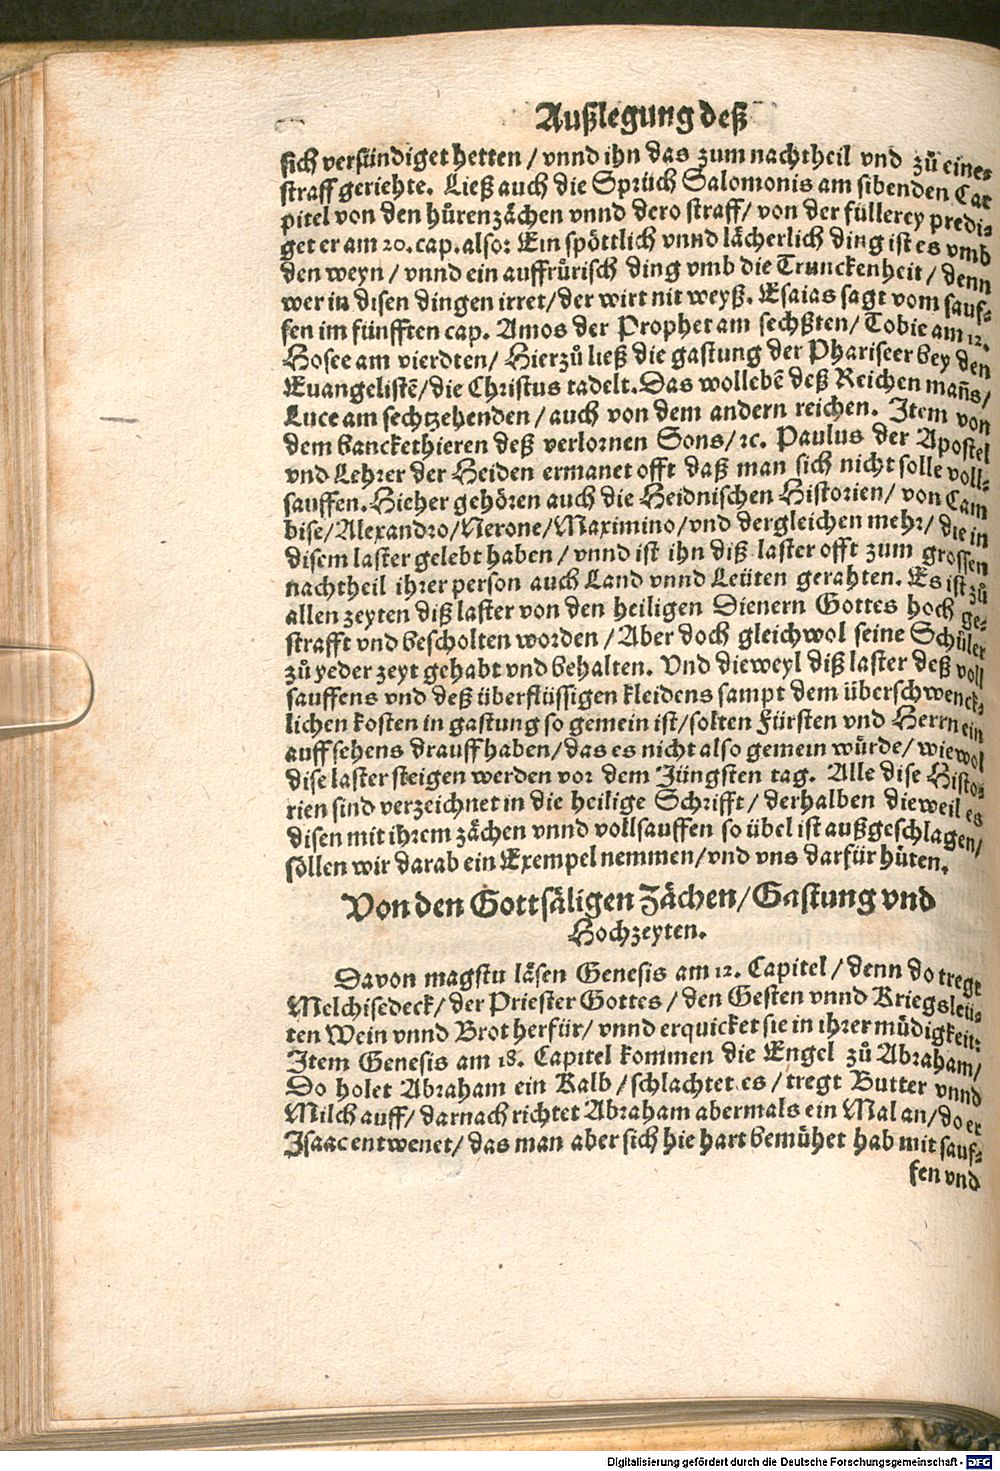 Außlegung deß
sich versündiget hetten / vnnd ihn das zum nachtheil vnd zů eine⸗
straff geriehte. Ließ auch die Sprüch Salomonis am sibenden Ca⸗
pitel von den hůrenzächen vnnd dero straff / von der füllerey predi⸗
get er am 20. cap. also: Ein spöttlich vnnd lächerlich ding ist es vmb
den weyn / vnnd ein auffrůrisch ding vmb die Trunckenheit / denn
wer in disen dingen irret / der wirt nit weyß. Esaias sagt vom sauf⸗
fen im fünfften cap. Amos der Prophet am sechßten / Tobie am 12.
Hosee am vierdten / Hierzů ließ die gastung der Phariseer bey den
Euangelistē / die Christus tadelt. Das wollebē deß Reichen mañs /
Luce am sechtzehenden / auch von dem andern reichen. Item von
dem banckethieren deß verlornen Sons / ꝛc. Paulus der Apostel
vnd Lehrer der Heiden ermanet offt daß man sich nicht solle voll⸗
sauffen. Hieher gehören auch die Heidnischen Historien / von Cam
bise / Alexandro / Nerone / Maximino / vnd dergleichen mehr / die in
disem laster gelebt haben / vnnd ist ihn diß laster offt zum grossen
nachtheil ihrer person auch Land vnnd Leüten gerahten. Es ist zů
allen zeyten diß laster von den heiligen Dienern Gottes hoch ge⸗
strafft vnd bescholten worden / Aber doch gleichwol seine Schůler
zů yeder zeyt gehabt vnd behalten. Vnd dieweyl diß laster deß voll
sauffens vnd deß überflüssigen kleidens sampt dem überschwenck⸗
lichen kosten in gastung so gemein ist / solten Fürsten vnd Herrn ein
auffsehens drauff haben / das es nicht also gemein würde / wiewol
dise laster steigen werden vor dem Jüngsten tag. Alle dise Histo⸗
rien sind verzeichnet in die heilige Schrifft / derhalben dieweil es
disen mit ihrem zächen vnnd vollsauffen so übel ist außgeschlagen /
söllen wir darab ein Exempel nemmen / vnd vns darfür hüten.
Von den Gottsäligen Zächen / Gastung vnd
Hochzeyten.
Davon magstu läsen Genesis am 12. Capitel / denn do tregt
Melchisedeck / der Priester Gottes / den Gesten vnnd Kriegsleü⸗
ten Wein vnnd Brot herfür / vnnd erquicket sie in ihrer müdigkeit:
Item Genesis am 18. Capitel kommen die Engel zů Abraham /
Do holet Abraham ein Kalb / schlachtet es / tregt Butter vnnd
Milch auff / darnach richtet Abraham abermals ein Mal an / do er
Isaac entwenet / das man aber sich hie hart bemühet hab mit sauf⸗
fen vnd
Digitalisierung gefördert durch die Deutsche Forschungsgemeinschaft - DFG